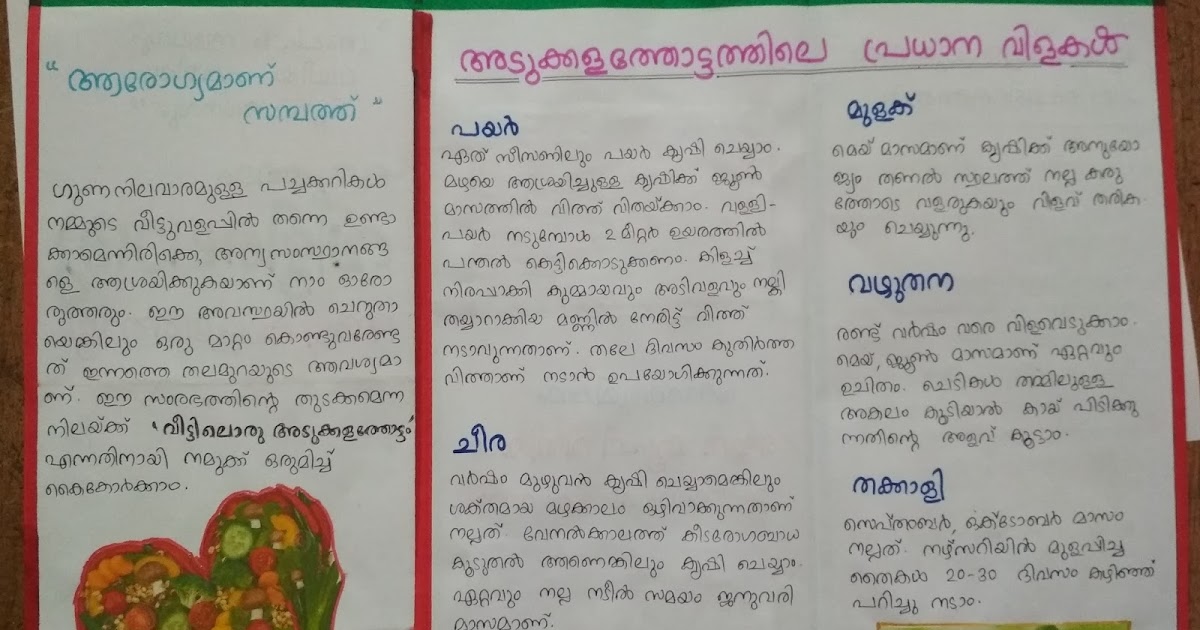 "ആരോഗ്യമാണ്
സമ്പത്ത്"
ഗുണനിലവാരമുള്ള പച്ചക്കറികൾ
നമ്മുടെ വീട്ടുവളപ്പിൽ തന്നെ ഉണ്ടാ
ക്കാമെന്നിരിക്കെ, അന്യസംസ്ഥാനങ്ങ
ളെ ആശ്രയിക്കുകയാണ് നാം ഓരോ
രുത്തരും. ഈ അവസ്ഥയിൽ ചെറുതാ
യെങ്കിലും ഒരു മാറ്റം കൊണ്ടുവരേണ്ട
ത് ഇന്നത്തെ തലമുറയുടെ ആവശ്യമാ
ണ്. ഈ സംരഭത്തിന്റെ തുടക്കമെന്ന
നിലയ്ക്ക് 'വീട്ടിലൊരു അടുക്കളത്തോട്ടം'
എന്നതിനായി നമുക്ക് ഒരുമിച്ച്
കൈകോർക്കാം.
അടുക്കളത്തോട്ടത്തിലെ പ്രധാന വിളകൾ
പയർ
ഏത് സീസണിലും പയർ കൃഷി ചെയ്യാം.
മഴയെ ആശ്രയിച്ചുള്ള കൃഷിക്ക് ജൂൺ
മാസത്തിൽ വിത്ത് വിതയ്ക്കാം. വള്ളി-
പയർ നടുമ്പോൾ 2 മീറ്റർ ഉയരത്തിൽ
പന്തൽ കെട്ടിക്കൊടുക്കണം. കിളച്ച്
നിരപ്പാക്കി കുമ്മായവും അടിവളവും നല്കി
തയ്യാറാക്കിയ മണ്ണിൽ നേരിട്ട് വിത്ത്
നടാവുന്നതാണ്. തലേ ദിവസം കുതിർത്ത
വിത്താണ് നടാൻ ഉപയോഗിക്കുന്നത്.
ചീര
വർഷം മുഴുവൻ കൃഷി ചെയ്യാമെങ്കിലും
ശക്തമായ മഴക്കാലം ഒഴിവാക്കുന്നതാണ്
നല്ലത്. വേനൽക്കാലത്ത് കീടരോഗബാധ
കൂടുതൽ ആണെങ്കിലും കൃഷി ചെയ്യാം.
ഏറ്റവും നല്ല നടീൽ സമയം ജനുവരി
മാസമാണ്.
മുളക്
മെയ് മാസമാണ് കൃഷിക്ക് അനുയോ
ജ്യം തണൽ സ്ഥലത്ത് നല്ല കരു
ത്തോടെ വളരുകയും വിളവ് തരിക
യും ചെയ്യുന്നു.
വഴുതന
രണ്ട് വർഷം വരെ വിളവെടുക്കാം.
മെയ്, ജൂൺ മാസമാണ് ഏറ്റവും
ഉചിതം. ചെടികൾ തമ്മിലുള്ള
അകലം കൂടിയാൽ കായ് പിടിക്കു
ന്നതിന്റെ അളവ് കൂട്ടാം.
തക്കാളി
സെപ്തംബർ, ഒക്ടോബർ മാസം
നല്ലത്. നഴ്സറിയിൽ മുളപ്പിച്ച
തൈകൾ 20-30 ദിവസം കഴിഞ്ഞ്
പറിച്ചു നടാം.